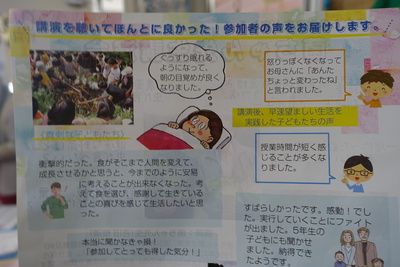 講演を聴いてほんとに良かった！参加者の声をお届けします。
ぐっすり眠れる
ようになって、
朝の目覚めが良く
なりました。
怒りっぽくなくなって
お母さんに「あんた
ちょっと変わったね」
と言われました。
講演後、早速望ましい生活を
実践した子どもたちの声
授業時間が短く感
じることが多くな
りました。
衝撃的だった。食がそこまで人間を変えて、
成長させるかと思うと、今までのように安易
に考えることが出来なくなった。考
えて食を選び、感謝して生きている
ことの喜びを感じて生活したいと思
った。
本当に聞かなきゃ損！
「参加してとっても得した気分！」
すばらしかったです。感動！でし
た。実行していくことにファイト
が出ました。5年生の
子どもにも聞かせ
ました。納得でき
たようです。